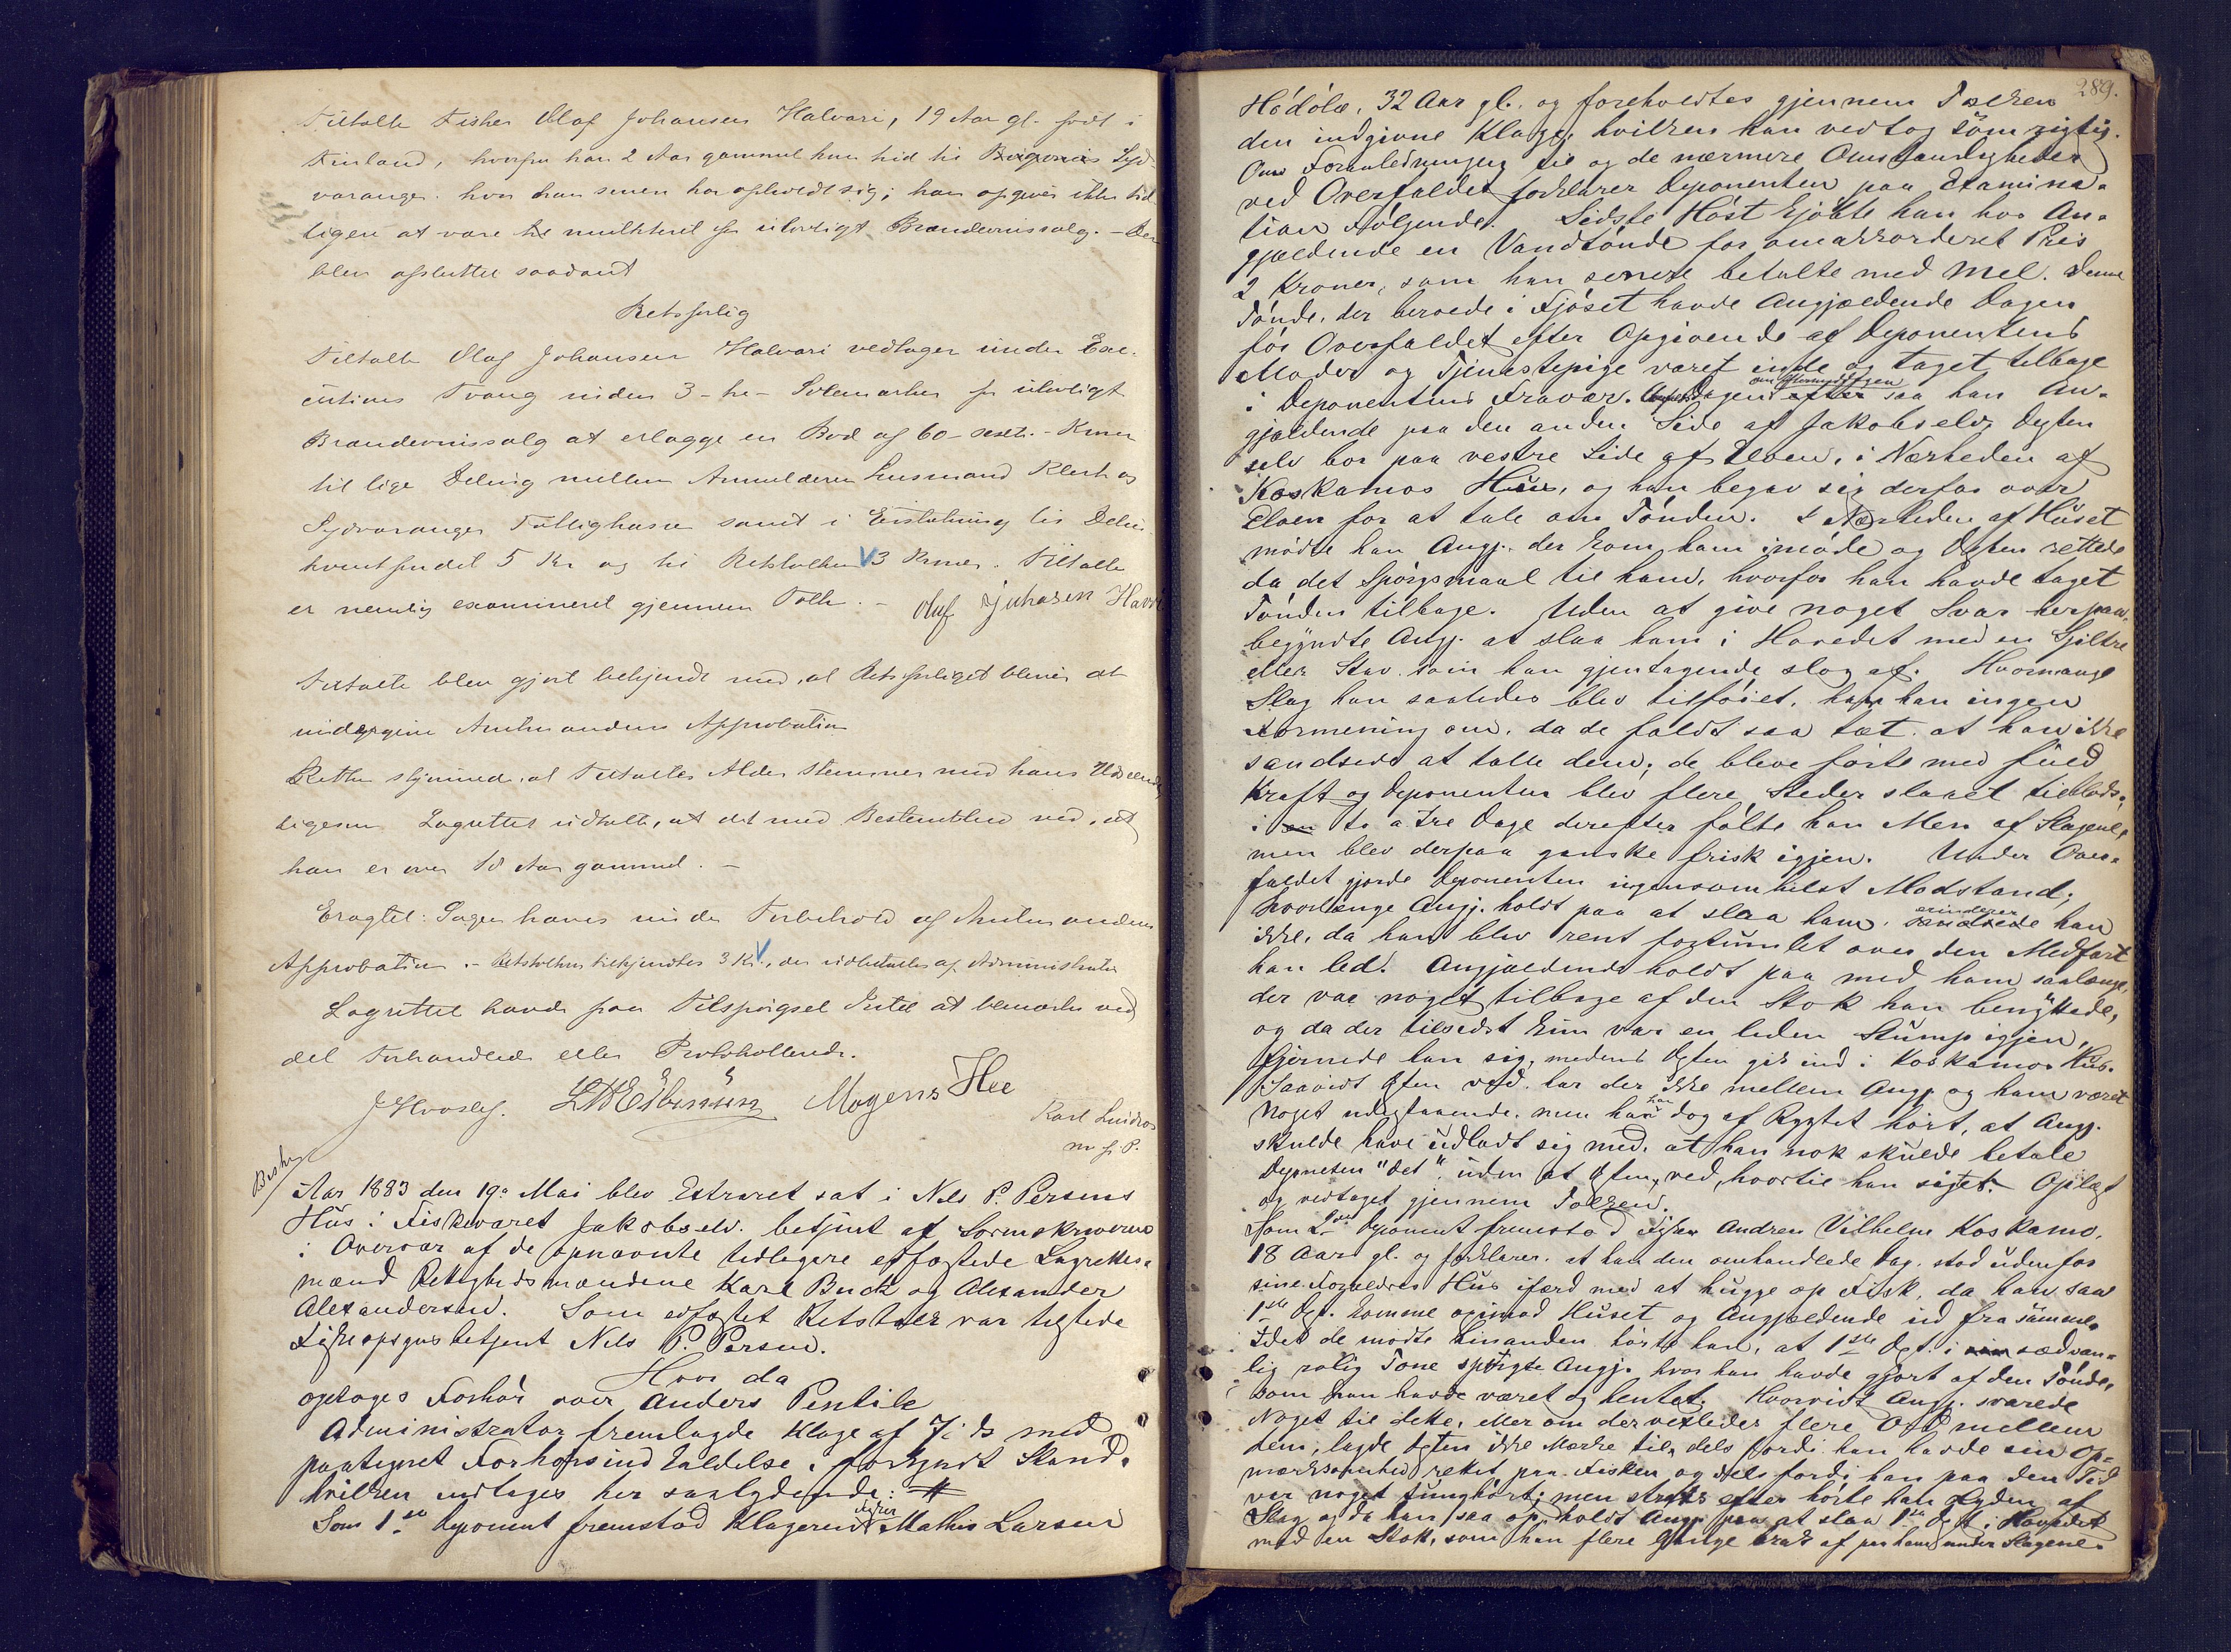 Tiltalte Fisker Olaf Johansen Halvari, 19 Aar gl. født i
Finland, hvorfra han 2 Aar gammel kom hid til Syd-
varanger, hvor han senere har opholdt sig; han opgiver ikke tid
ligere at være mulkteret for ulovligt Brændevinssalg. – Der
blev afsluttet saadant
Retsforlig
Tiltalte Olaf Johansen Halvari vedtager under Exe-
cutions Tvang inden 3 – tre – Solemærker for ulovligt
Brændevinssalg at erlægge en Bod af 60 – sexti – Kroner
til lige Deling mellem Anmelderen Lensmand Klerk og
Sydvaranger Fattigkasse samt i Erstatning til Delin-
kventfondet 5 Kr og til Retstolken 3 Kroner. Tiltalte
er nemlig examineret gjennem Tolk. – Oluf Juhasen
Tiltalte blev gjort bekjendt med, at Retsforliget bliver at
undergive Amtmandens Approbation
Retten skjønned, at Tiltaltes Alder stemmer med hans Udseende,
ligesom Lagrettet udtalte, at det med Bestemthed ved, at
han er over 18 Aar gammel. –
Eragtet: Sagen hæves under Forbehold af Amtmandens
Approbation. – Retstolken tilkjendtes 3 Kr., der udbetaltes af Administrator
Lagrettet havde paa Tilspørgsel Intet at bemærke ved
det Forhandlede eller Protokollerede.
Mogens Hee
m. f. P.
Aar 1883 den 19de Mai blev Extraret sat i Nils P. Persens
Hus i Fiskeværet Jakobselv. betjent af Sorenskriveren
i Overvær af de opnævnte tidligere edfæstede Lagrettes-
mænd Rettighedsmændene Karl Buck og Alexander
Alexandersen. Som edfæstet Retstolk var tilstede
Fiskeopsynsbetjent Nils P. Persen.
Hvor da
optoges Forhør over Anders Pentile
Administrator fremlagde Klage af 7. ds med
paategnet Forhørsindkaldelse i forkyndt Stand,
hvilken indtages her saalydende: #
Som 1ste Deponent fremstod Klageren Fisker Mathis Larsen
289.
32 Aar gl. og foreholdtes gjennem Tolken
den indgivne Klage, hvilken han vedtog som rigtig.
Om Foranledningen til og de nærmere Omstændigheder
ved Overfaldet forklarer Deponenten paa Examina-
tion Følgende. Sidste Høst kjøbte han hos An-
gjældende en Vandtønde for omakkorderet Pris
2 Kroner, som han senere betalte med Mel. Denne
Tønde, der beroede i Fjøset havde Angjældende Dagen
før Overfaldet efter Opgivende af Deponentens
Moder og Tjenestepige været inde og taget tilbage
i Deponentens Fravær. Dagen efter om Eftermiddagen saa han An-
gjældende paa den anden Side af Jakobselv, Dpten
selv bor paa vestre Side af Elven, i Nærheden af
Koskamos Hus, og han begav sig derfor over
Elven for at tale om Tønden. I Nærheden af Huset
mødte han Angj. der kom ham imøde og Dpten rettede
da det Spørgsmaal til ham, hvorfor han havde taget
Tønden tilbage. Uden at give noget Svar herpaa,
begyndte Angj. at slaa ham i Hovedet med en
eller Stav som han gjentagende slog af. Hvormange
Slag han saaledes blev tilføiet, har han ingen
Formening om, da de faldt saa tæt at han ikke
sandsede at tælle dem; de bleve førte med fuld
Kraft og Deponenten blev flere Steder slaaet tilblods;
i en to a tre Dage derefter følte han Men af Slagene,
men blev derpaa ganske frisk igjen. Under Over-
faldet gjorde Deponenten ingensomhelst Modstand;
hvorlænge Angj. holdt paa at slaa ham, erindrer han
ikke, da han blev rent fortumlet over den Medfart
han led. Angjældende holdt paa med ham saalænge,
der var noget tilbage af den Stok han benyttede,
og da der tilsidst kun var en liden Stump igjen,
fjernede han sig, medens Dpten gik ind i Koskamos Hus.
Saavidt Dpten ved, har der ikke mellem Angj. og ham været
noget udestaaende, men han har dog af Rygtet hørt, at Angj.
skulde have udladt sig med, at han nok skulde betale
Deponenten "det", uden at Dpten ved, hvortil han sigtet. Oplæst
og vedtaget gjennem Tolken.
Som 2den Deponent fremstod Fisker Andreas Vilhelm Koskamo,
18 Aar gl. og forklarer, at han den omhandlede Dag stod udenfor
sine Forældres Hus ifærd med at hugge op Fisk, da han saa
1ste Dpt. komme opimod Huset og Angjældende ud fra samme.
Idet de mødte hinanden hørte han, at 1ste Dpt. i sin sædvan-
lig rolig Tone spørgte Angj. hvor han havde gjort af den Tønde,
som han havde været og hentet. Hvorvidt Angj. svarede
Noget til dette, eller om der vexledes flere Ord mellem
dem, lagde Dpten ikke Mærke til, dels fordi han havde sin Op-
mærksomhed rettet paa Fisken og dels fordi han paa den Tid
var noget tunghørt; men straks efter hørte han Lyden af
Slag og da han saa op, holdt Angj. paa at slaa 1ste Dpt. i Hovedet
med en Stok, som han flere Gange brak af paa ham under Slagene.